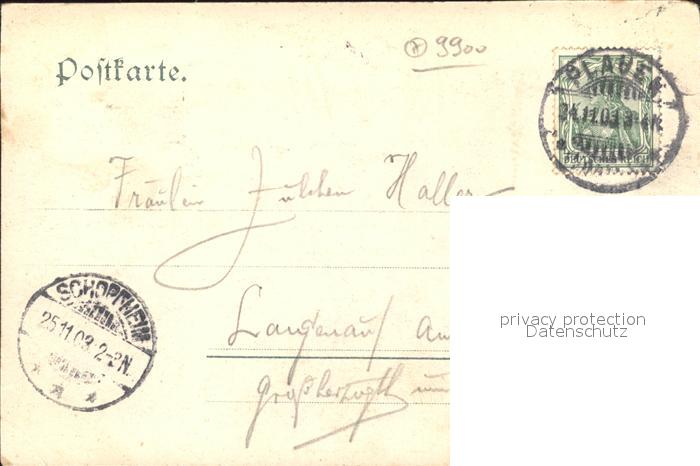 9900
Postkarte.
PLAUEN
24.11.03. 3-4N.
DEUTSCHES REICH
Fräulein Julchen Haller
privacy protection
Datenschutz
SCHOPFHEIM
25.11.03. 2-2N.
Langenau Am
Großherzogth